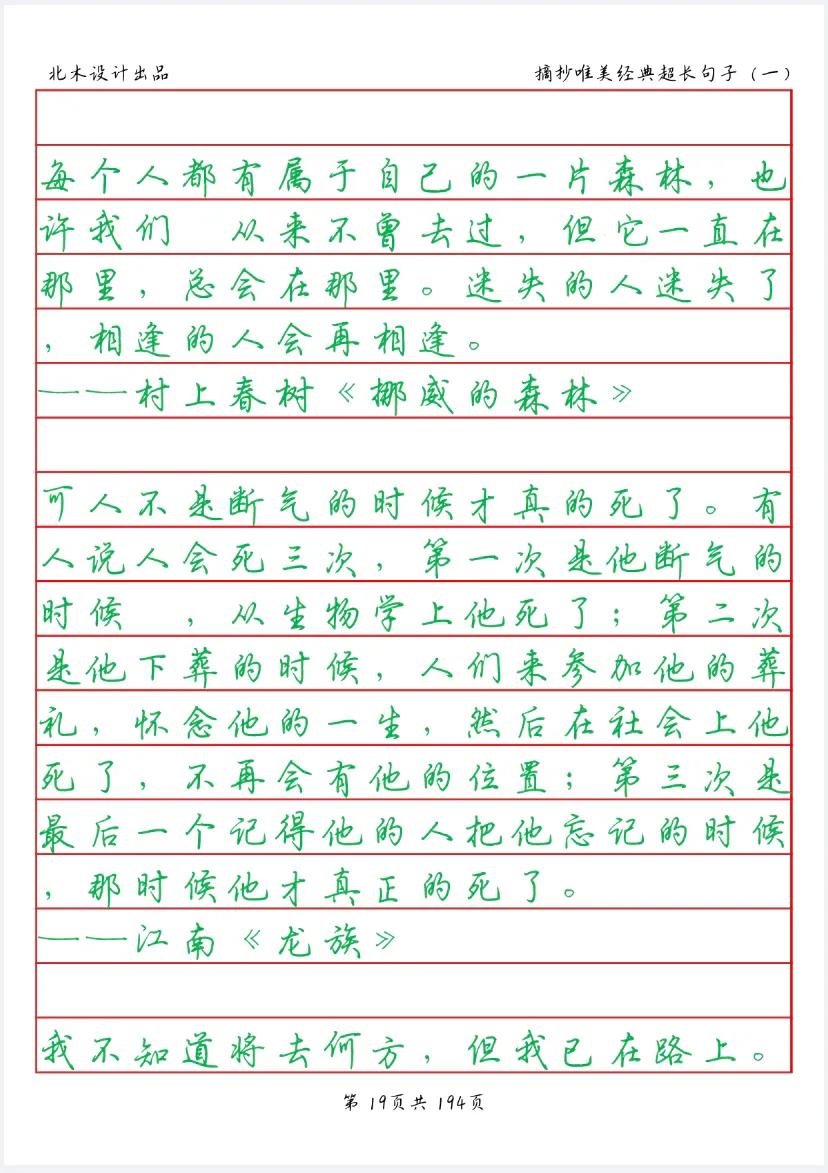 北木设计出品
摘抄唯美经典超长句子（一）
每个人都有属于自己的一片森林，也
许我们 从来不曾去过，但它一直在
那里，总会在那里。迷失的人迷失了
，相逢的人会再相逢。
——村上春树《挪威的森林》
可人不是断气的时候才真的死了。有
人说人会死三次，第一次是他断气的
时候 ，从生物学上他死了；第二次
是他下葬的时候，人们来参加他的葬
礼，怀念他的一生，然后在社会上他
死了，不再会有他的位置；第三次是
最后一个记得他的人把他忘记的时候
，那时候他才真正的死了。
——江南《龙族》
我不知道将去何方，但我已在路上。
第 19页共 194页